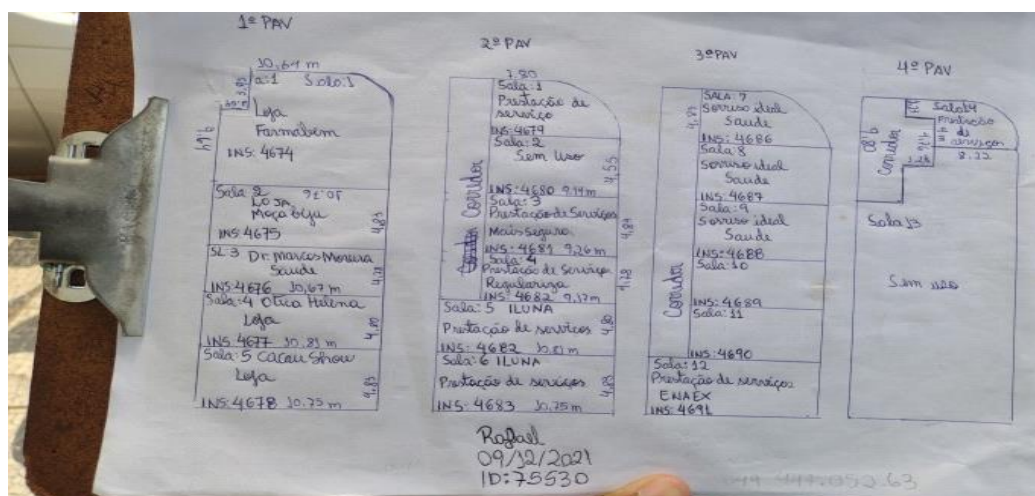 1º PAV
10,61 m
3,83
a:1 Sala:1
Loja
Farmabem
9,64
INS: 4674
Sala 2 10,76
LOJA
Moça biju
4,83
INS: 4675
SL 3 Dr. Marcos Moreira
Saúde
INS: 4676 10,67 m
Sala: 4 Otica Helena
Loja
4,80
INS: 4677 10,81 m
Sala: 5 Cacau Show
Loja
4,83
INS: 4678 10,75 m
2º PAV
7,80
Sala: 1
Prestação de
serviço
INS: 4679
Sala: 2
Sem uso
4,55
INS: 4680 9,14 m
Corredor
Sala: 3
Prestação de Serviços
Mais Segura
4,84
INS: 4681 9,26 m
Sala: 4
Prestação de Serviços
Regulariza
4,78
INS: 4682 9,17 m
Sala: 5 ILUNA
Prestação de serviços
4,80
INS: 4682 10,81 m
Sala: 6 ILUNA
Prestação de serviços
4,83
INS: 4683 10,75 m
3º PAV
SALA: 7
Sorriso ideal
Saude
INS: 4686
Sala: 8
Sorriso ideal
Saude
INS: 4687
Sala: 9
Sorriso ideal
Saude
INS: 4688
Sala: 10
Corredor
INS: 4689
Sala: 11
INS: 4690
Sala: 12
Prestação de serviços
ENAEX
INS: 4691
4º PAV
Sala 14
Prestação
de
serviços
8,22
9,80
Corredor
1,78
1,28
Sala 13
Sem uso
Rafael
09/12/2021
ID: 75530